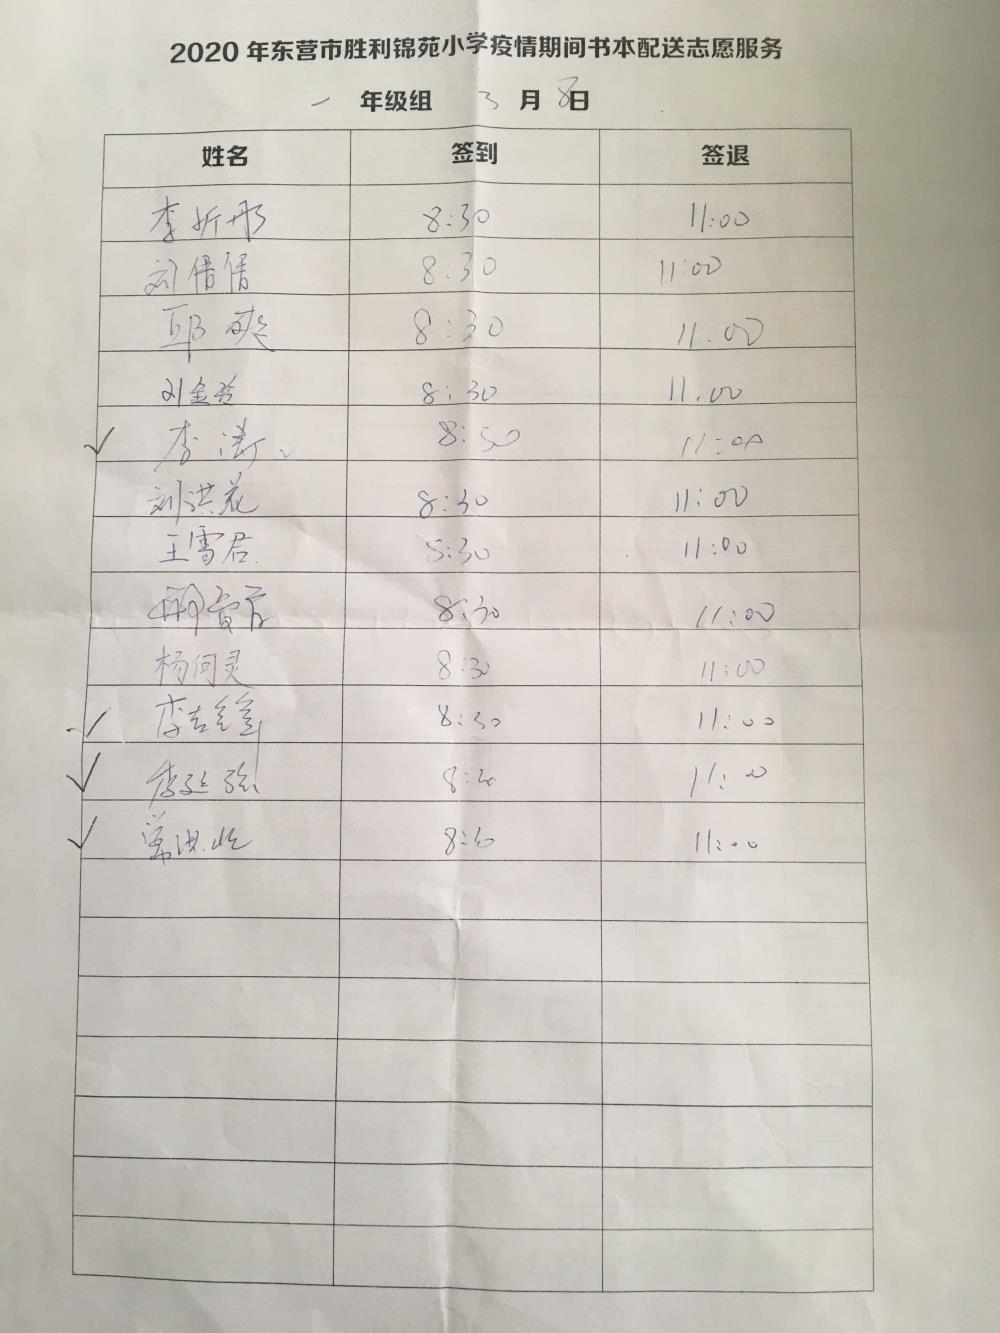 2020 年东营市胜利锦苑小学疫情期间书本配送志愿服务
一 年级组 3 月 8日
姓名 签到 签退
李昕彤 8:30 11:00
刘倩倩 8:30 11:00
邱爽 8:30 11.00
刘金玲 8:30 11:00
李涛 8:30 11:00
刘洪花 8:30 11:00
王雪君 8:30 11:00
8:30 11:00
杨何灵 8:30 11:00
李 8:30 11:00
李延强 8:30 11:00
常洪 8:30 11:00